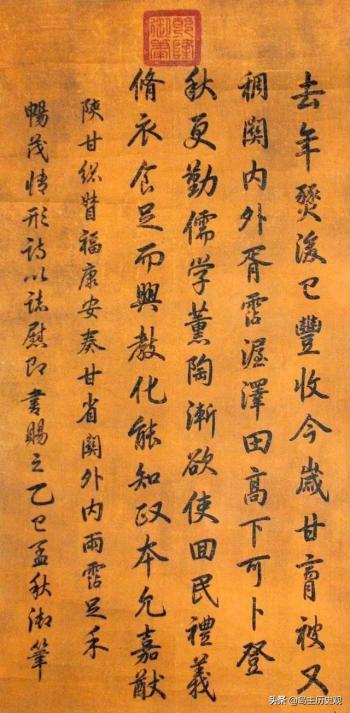 乾隆御筆
去年燹後已豐收今歲甘膏被又
稠關內外胥霑渥澤田高下可卜登
秋更勤儒學薰陶漸欲使回民禮義
脩衣食足而興教化能知政本允嘉猷
陝甘總督福康安奏甘省關外內雨霑足禾
暢茂情形詩以誌慰即書賜之乙巳孟秋御筆
头条 @岛主历史观